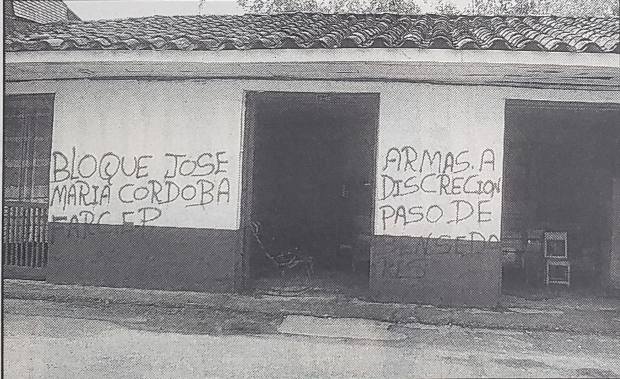 BLOQUE JOSE
MARIA CORDOBA
FARC EP
ARMAS. A
DISCRECION
PASO. DE